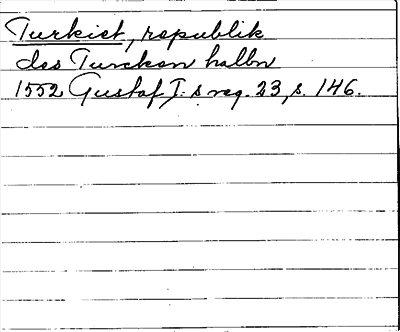 Turkiet, republik
des Turcken halbn
1552 Gustaf I:s reg. 23, s. 146.